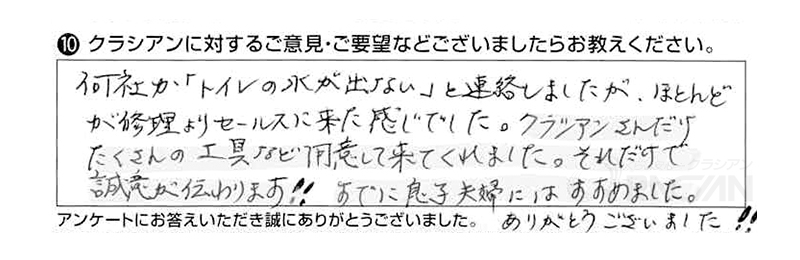 ❿ クラシアンに対するご意見・ご要望などございましたらお教えください。
何社か「トイレの水が出ない」と連絡しましたが、ほとんど
が修理よりセールスに来た感じでした。クラシアンさんだけ
たくさんの工具など用意して来てくれました。それだけで
誠意が伝わります!! すでに息子夫婦にはすすめました。
アンケートにお答えいただき誠にありがとうございました。 ありがとうございました!!